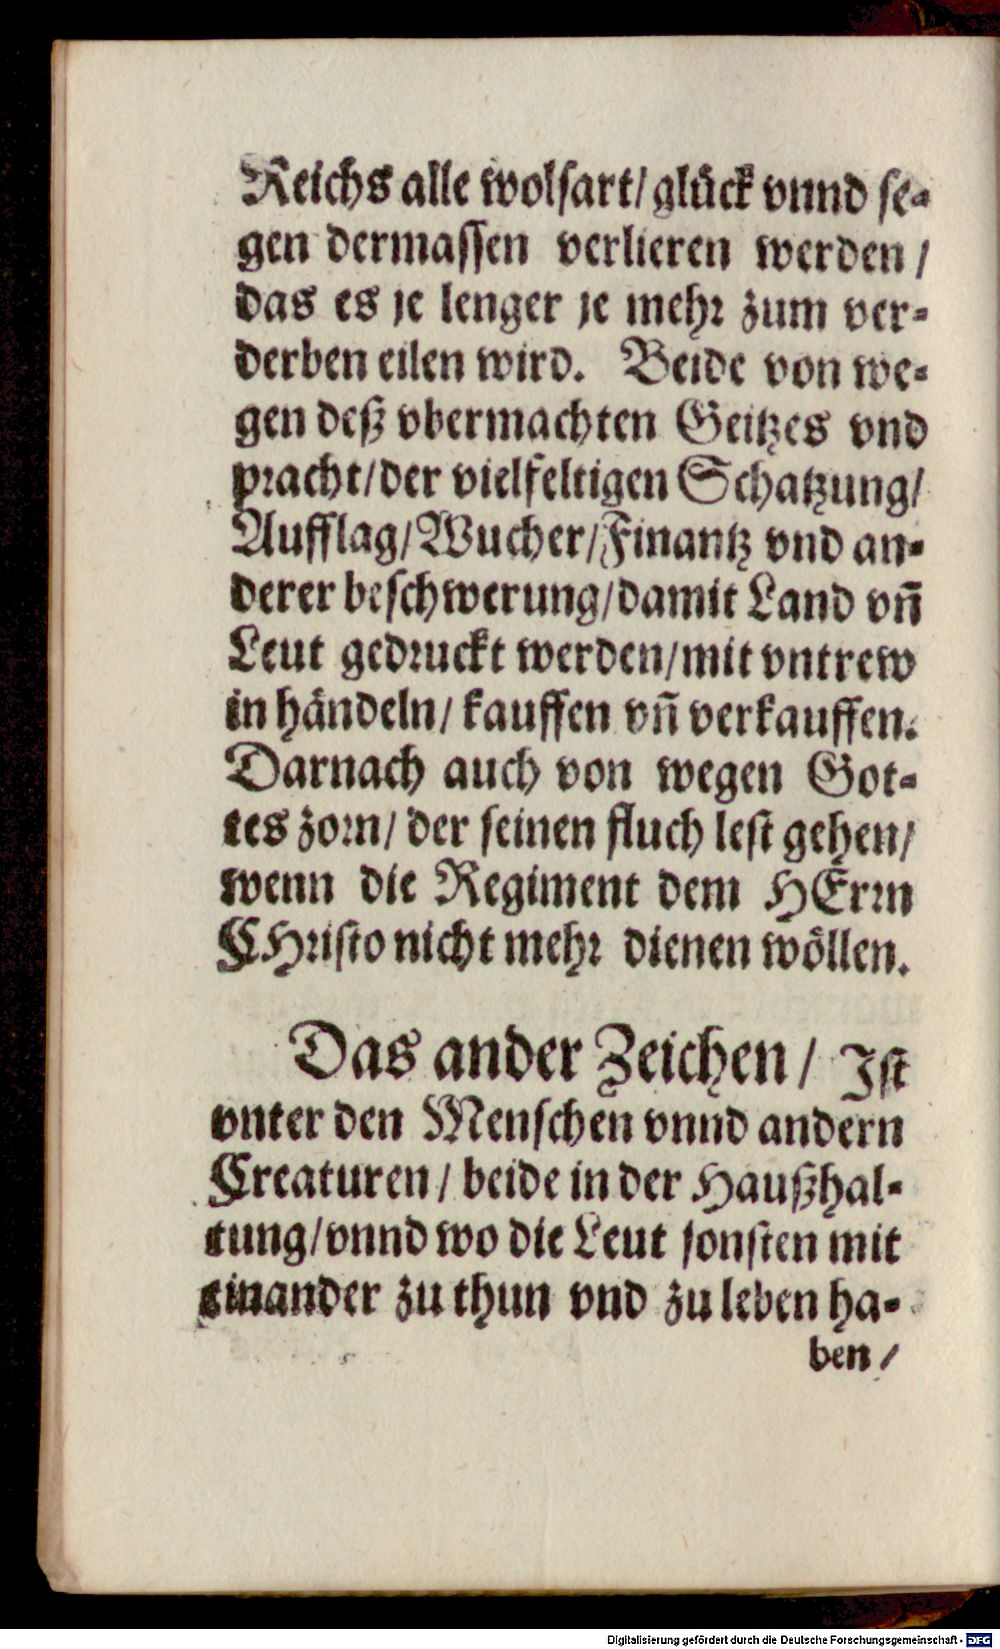 Reichs alle wolfart/ glück vnnd se-
gen dermassen verlieren werden /
das es je lenger je mehr zum ver-
derben eilen wird. Beide von we-
gen deß vbermachten Geitzes vnd
pracht/ der vielfeltigen Schatzung/
Aufflag/ Wucher/ Finantz vnd an-
derer beschwerung/ damit Land vñ
Leut gedruckt werden/ mit vntrew
in händeln/ kauffen vñ verkauffen.
Darnach auch von wegen Got-
tes zorn/ der seinen fluch lest gehen/
wenn die Regiment dem HErrn
CHristo nicht mehr dienen wöllen.
Das ander Zeichen / Ist
vnter den Menschen vnnd andern
Creaturen / beide in der Haußhal-
tung/ vnnd wo die Leut sonsten mit
einander zu thun vnd zu leben ha-
ben /
Digitalisierung gefördert durch die Deutsche Forschungsgemeinschaft - DFG